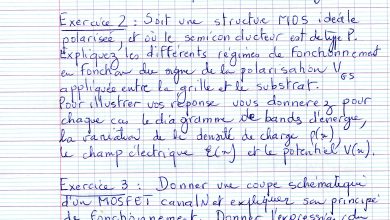 Exercice 2 : Soit une structure MOS idéale
polarisée, et où le semiconducteur est de type P.
Expliquez les différents régimes de fonctionnement
en fonction du signe de la polarisation V_GS
appliquée entre la grille et le substrat.
Pour illustrer vos réponse vous donnerez pour
chaque cas le diagramme de bandes d'énergie,
la variation de la densité de charge ρ(x),
le champ électrique E(x) et le potentiel V(x).
Exercice 3 : Donner une coupe schématique
d'un MOSFET canal N et expliquez son principe
de fonctionnement. Donner l'expression du